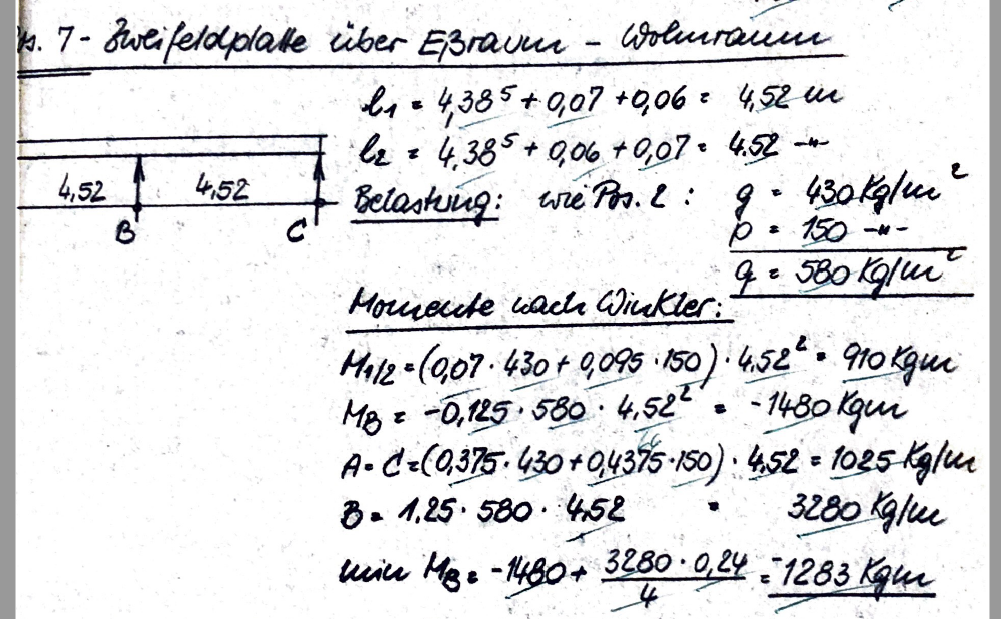 s. 7 - Zweifeldplatte über Eßraum - Wohnraum
l₁ = 4,38⁵ + 0,07 + 0,06 = 4,52 m
l₂ = 4,38⁵ + 0,06 + 0,07 = 4.52 -"-
4,52 4,52
B C
Belastung: wie Pos. 2 : g = 430 Kg/m²
p = 150 -"-
q = 580 Kg/m²
Momente nach Winkler:
M1/2 = (0,07 · 430 + 0,095 · 150) · 4,52² = 910 Kgm
MB = -0,125 · 580 · 4,52² = -1480 Kgm
A = C = (0,375 · 430 + 0,4375 · 150) · 4,52 = 1025 Kg/m
B = 1,25 · 580 · 4,52 = 3280 Kg/m
min MB = -1480 + 3280 · 0,24 / 4 = -1283 Kgm